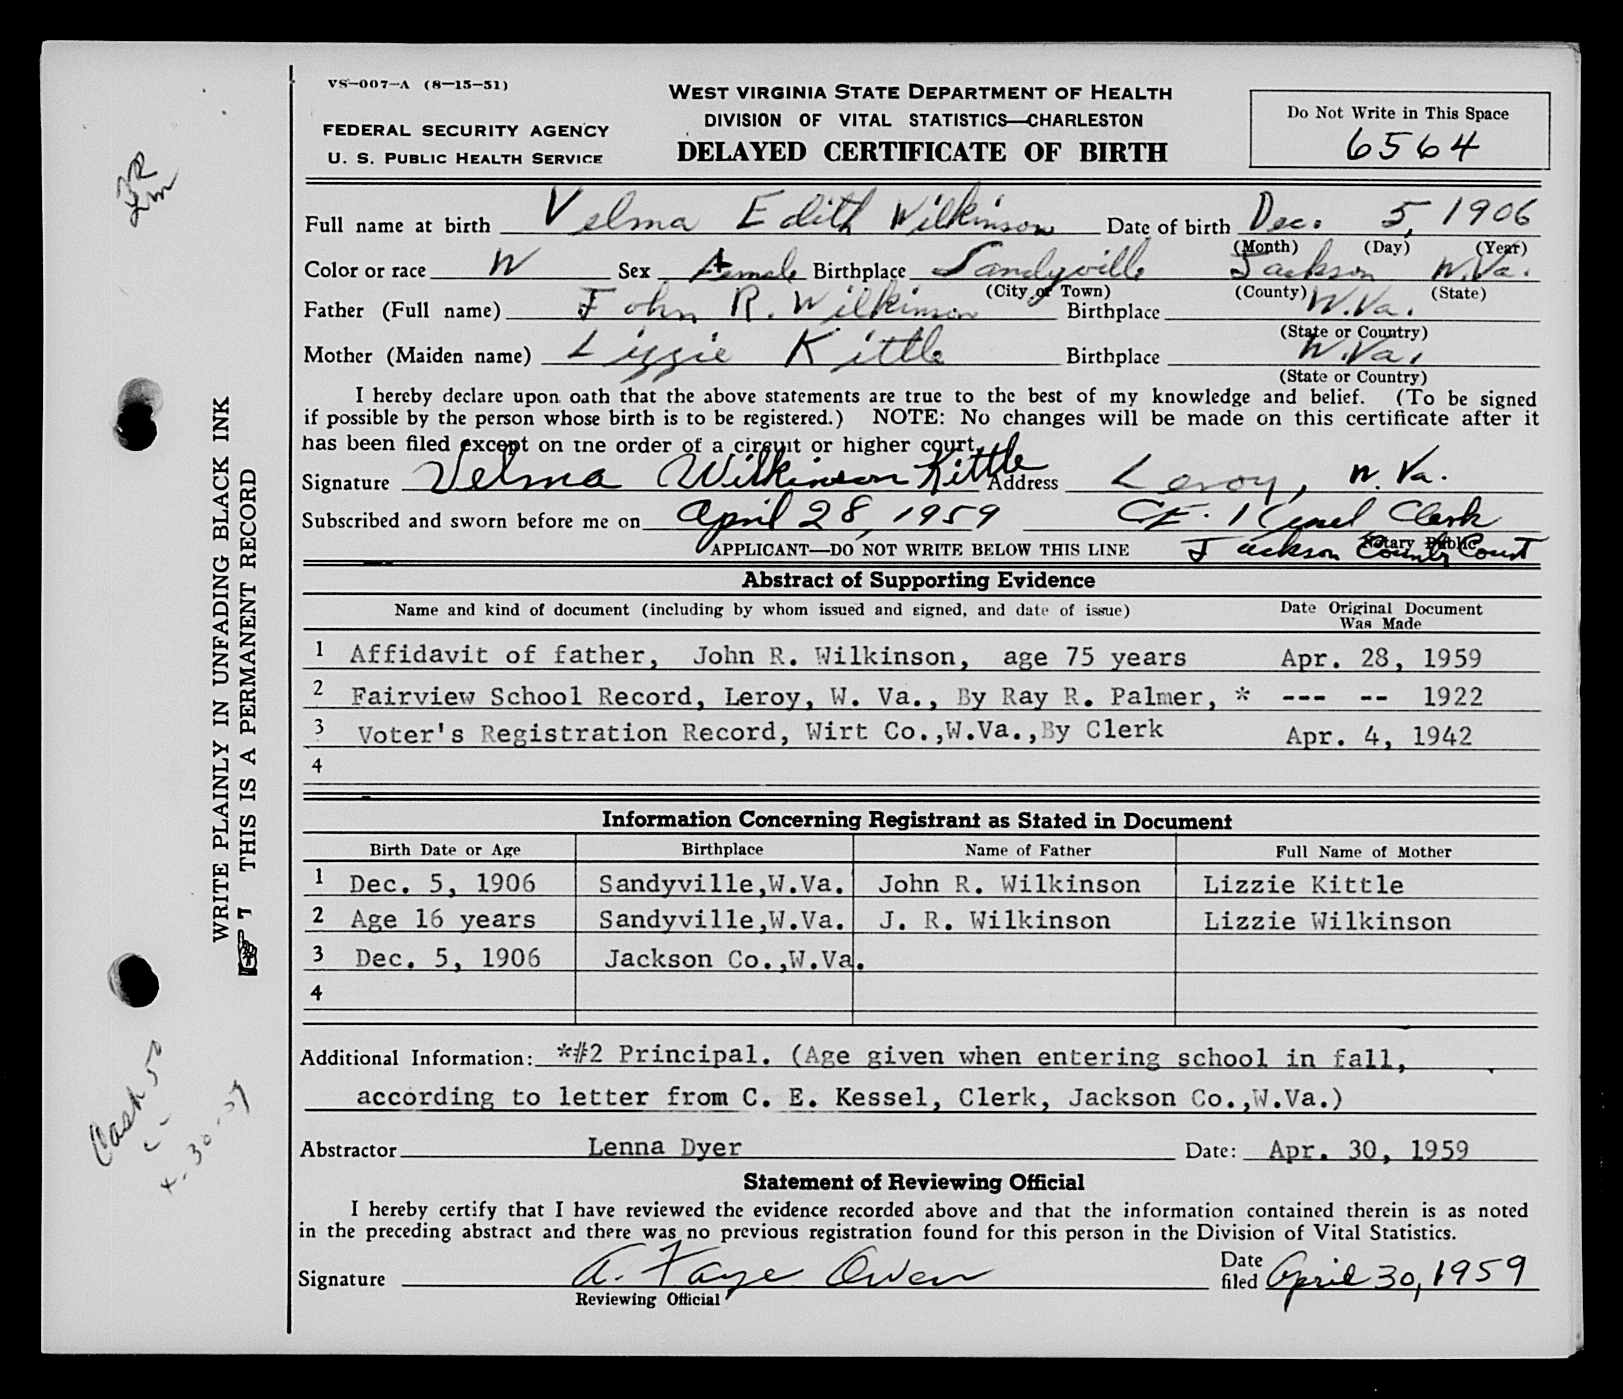 VS-007-A (8-15-51)
FEDERAL SECURITY AGENCY
U. S. PUBLIC HEALTH SERVICE
WEST VIRGINIA STATE DEPARTMENT OF HEALTH
DIVISION OF VITAL STATISTICS—CHARLESTON
DELAYED CERTIFICATE OF BIRTH
Do Not Write in This Space
6564
Full name at birth Velma Edith Wilkinson Date of birth Dec. 5, 1906
(Month) (Day) (Year)
Color or race W Sex Female Birthplace Sandyville Jackson W.Va.
(City or Town) (County) (State)
Father (Full name) John R. Wilkinson Birthplace W.Va.
(State or Country)
Mother (Maiden name) Lizzie Kittle Birthplace W.Va.
(State or Country)
I hereby declare upon oath that the above statements are true to the best of my knowledge and belief. (To be signed
if possible by the person whose birth is to be registered.) NOTE: No changes will be made on this certificate after it
has been filed except on the order of a circuit or higher court.
Signature Velma Wilkinson Kittle Address Leroy, W. Va.
Subscribed and sworn before me on April 28, 1959 C.E. Kessel Clerk
APPLICANT—DO NOT WRITE BELOW THIS LINE Notary Public Jackson County Court
Abstract of Supporting Evidence
Name and kind of document (including by whom issued and signed, and date of issue) Date Original Document
Was Made
1 Affidavit of father, John R. Wilkinson, age 75 years Apr. 28, 1959
2 Fairview School Record, Leroy, W. Va., By Ray R. Palmer, * --- -- 1922
3 Voter's Registration Record, Wirt Co.,W.Va.,By Clerk Apr. 4, 1942
4
Information Concerning Registrant as Stated in Document
Birth Date or Age Birthplace Name of Father Full Name of Mother
1 Dec. 5, 1906 Sandyville,W.Va. John R. Wilkinson Lizzie Kittle
2 Age 16 years Sandyville,W.Va. J. R. Wilkinson Lizzie Wilkinson
3 Dec. 5, 1906 Jackson Co.,W.Va.
4
Additional Information: *#2 Principal. (Age given when entering school in fall,
according to letter from C. E. Kessel, Clerk, Jackson Co.,W.Va.)
Abstractor Lenna Dyer Date: Apr. 30, 1959
Statement of Reviewing Official
I hereby certify that I have reviewed the evidence recorded above and that the information contained therein is as noted
in the preceding abstract and there was no previous registration found for this person in the Division of Vital Statistics.
Signature A. Faye Owen Date
filed April 30, 1959
Reviewing Official
WRITE PLAINLY IN UNFADING BLACK INK
THIS IS A PERMANENT RECORD
Cash 50
4-30-59